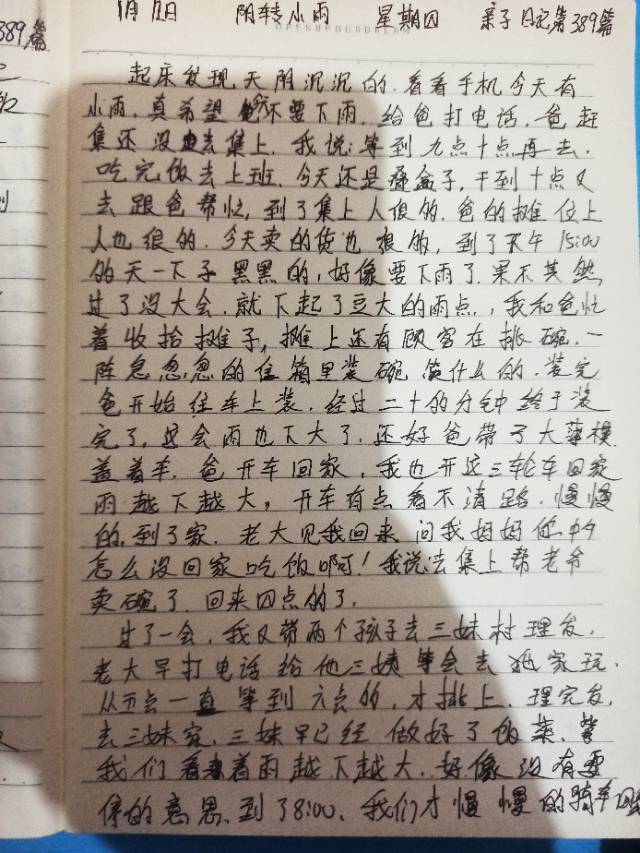 389篇
月 日 阴转小雨 星期四 亲子日记第389篇
OPENHPOUNDREAM
起床发现天阴沉沉的.看看手机今天有
小雨,真希望 不要下雨.给爸打电话,爸赶
集还没去集上.我说:等到九点十点再去.
吃完饭去上班.今天还是叠盒子,干到十点又
去跟爸帮忙,到了集上人很的.爸的摊位上
人也很的.今天卖的货也很的,到了下午15:00
的天一下子黑黑的,好像要下雨了.果不其然
过了没大会.就下起了豆大的雨点,我和爸忙
着收拾摊子,摊上还有顾客在挑碗.一
阵急忽忽的往箱里装碗 筷什么的.装完
爸开始往车上装.经过二十的分钟终于装
完了,这会雨也下大了.还好爸带了大薄模
盖着车.爸开车回家,我也开这三轮车回家
雨越下越大,开车有点看不清路.慢慢
的.到了家.老大见我回来 问我妈妈你中午
怎么没回家吃饭啊!我说去集上帮老爷
卖碗了.回来四点的了.
过了一会,我又带两个孩子去三妹村理发.
老大早打电话给他三姨等会去她家玩.
从五点一直等到六点的,才排上.理完发,
去三妹家,三妹早已经做好了饭菜.
我们看着雨越下越大.好像没有要
停的意思.到了8:00.我们才慢慢的骑车回